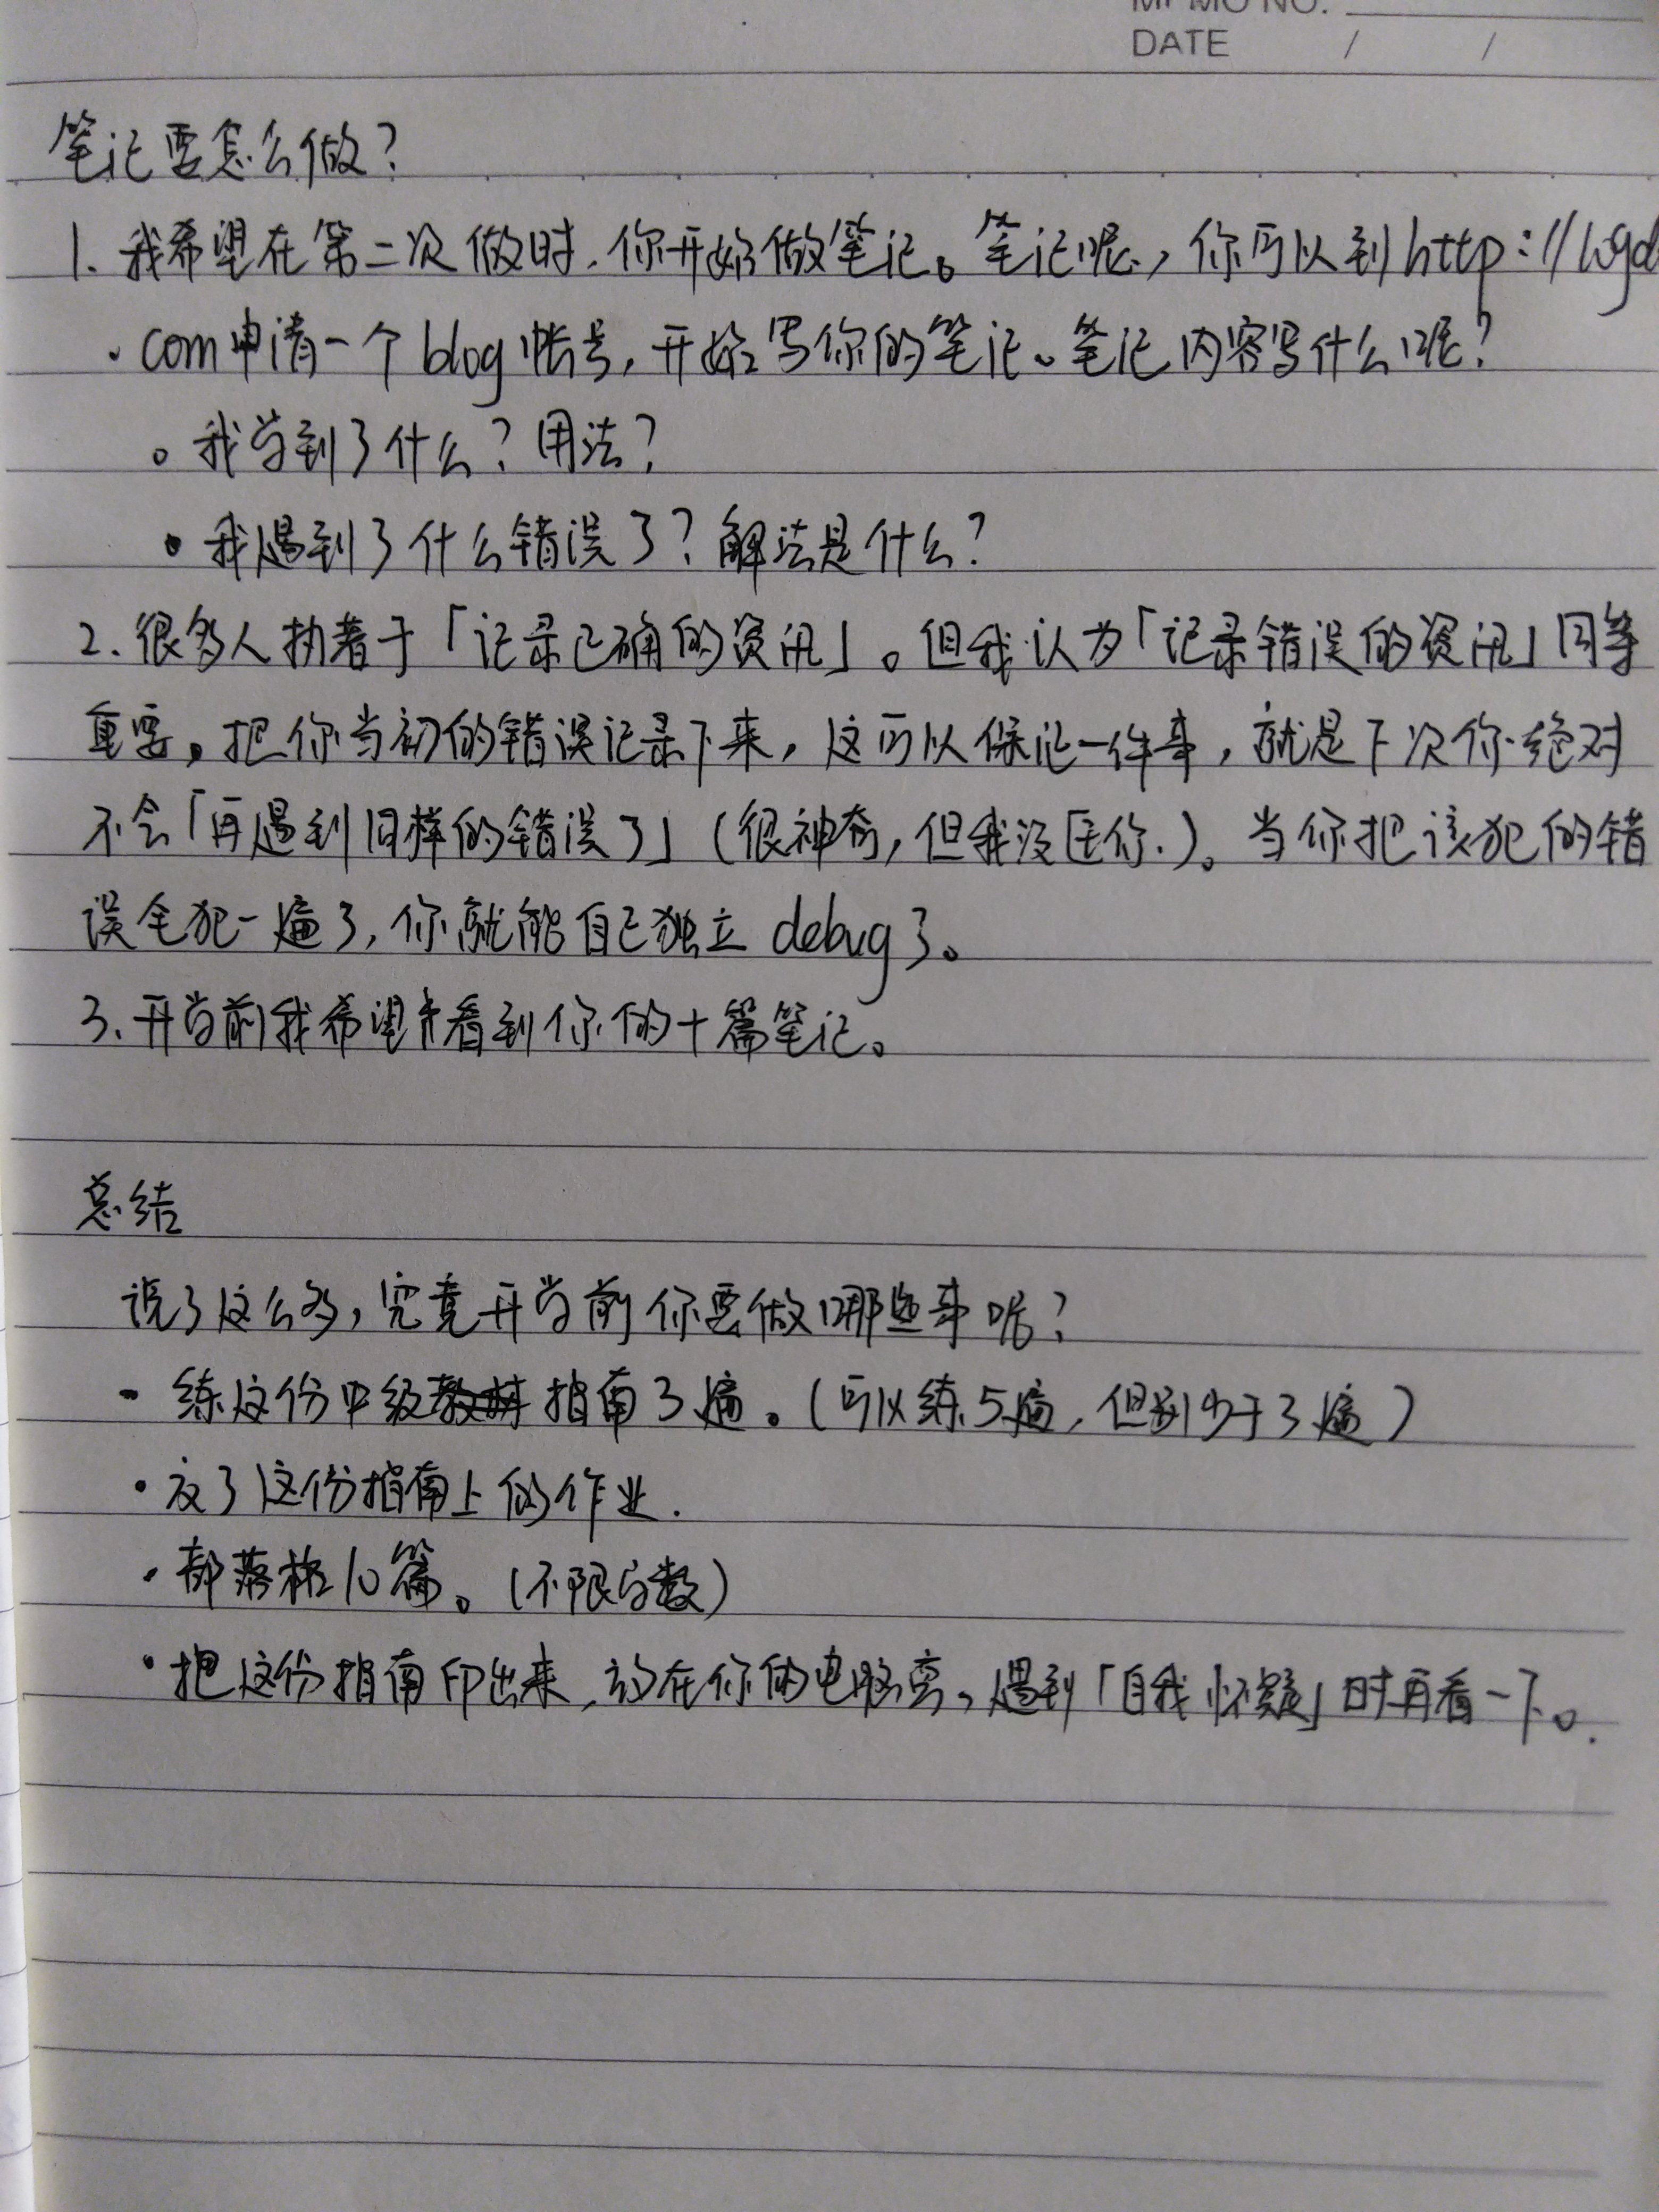 DATE / /
笔记要怎么做?
1. 我希望在第二次做时,你开始做笔记。笔记呢,你可以到http://logd
com申请一个blog帐号,开始写你的笔记。笔记内容写什么呢?
。我学到了什么?用法?
• 我遇到了什么错误了?解法是什么?
2. 很多人执着于「记录正确的资讯」。但我认为「记录错误的资讯」同等
重要。把你当初的错误记录下来,这可以保证一件事,就是下次你绝对
不会「再遇到同样的错误了」(很神奇,但我没医你.)。当你把该犯的错
误全犯一遍了,你就能自己独立debug了。
3. 开学前我希望看到你的十篇笔记。
总结
说了这么多,究竟开学前你要做哪些事呢?
- 练这份中级指南3遍。(可以练5遍,但别少于3遍)
• 交了这份指南上的作业.
• 部落格10篇。(不限字数)
• 把这份指南印出来,放在你的电脑旁,遇到「自我怀疑」时再看一下。